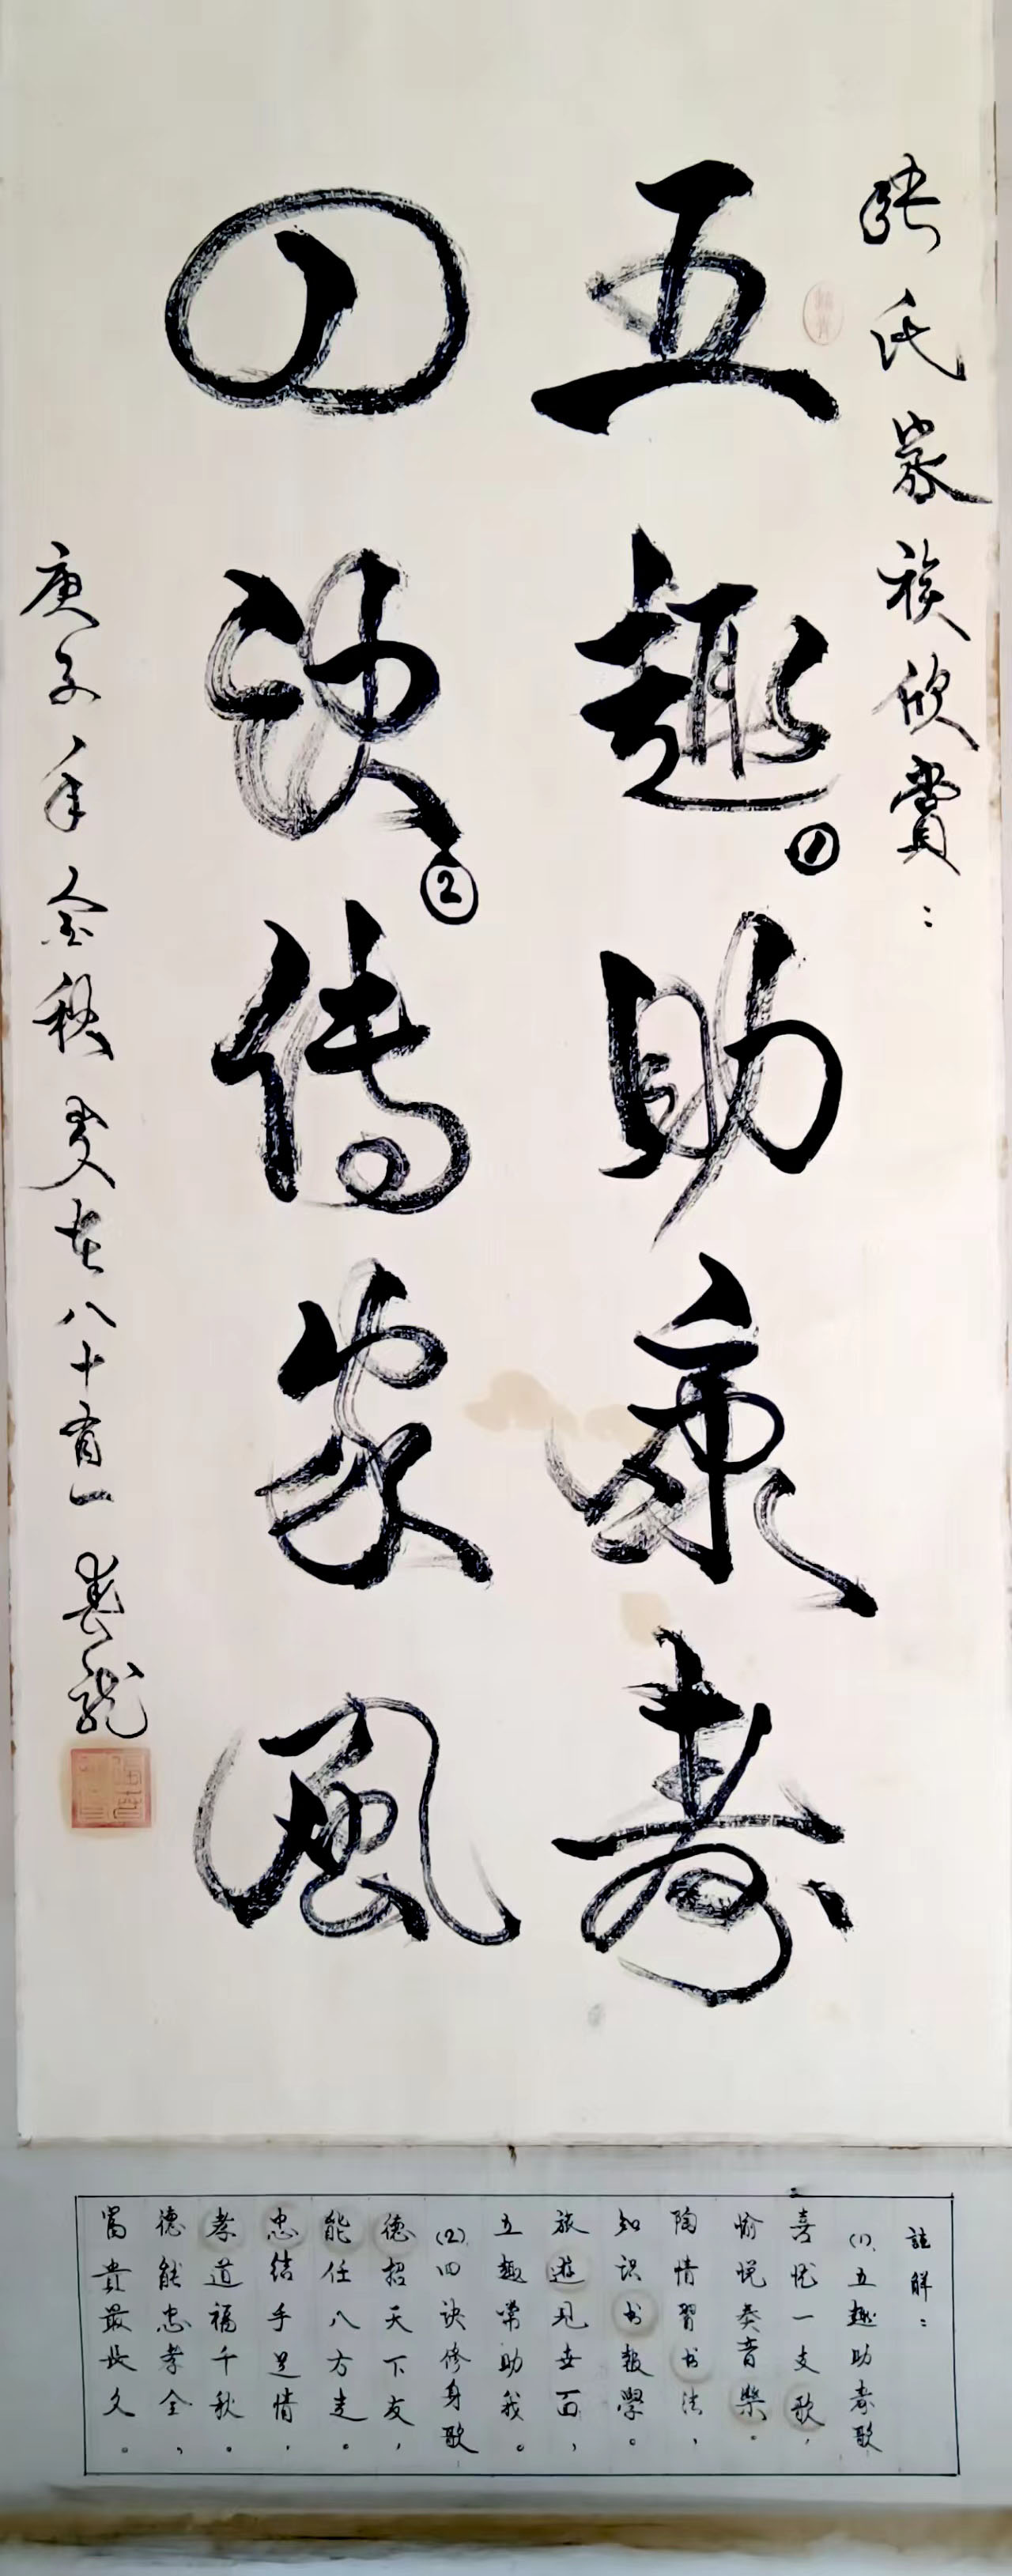 張氏家族欣賞：
五趣①助康寿
四诀②传家风
庚子年金秋 叟在八十有一 春龙
註解：
(1)、五趣助寿歌
喜忧一支歌，
愉悦奏音樂。
陶情習书法，
知识书報學。
旅遊见世面，
五趣常助我。
(2)、四诀修身歌
德招天下友，
能任八方走。
忠结手足情，
孝道福千秋。
德能忠孝全，
富貴最长久。